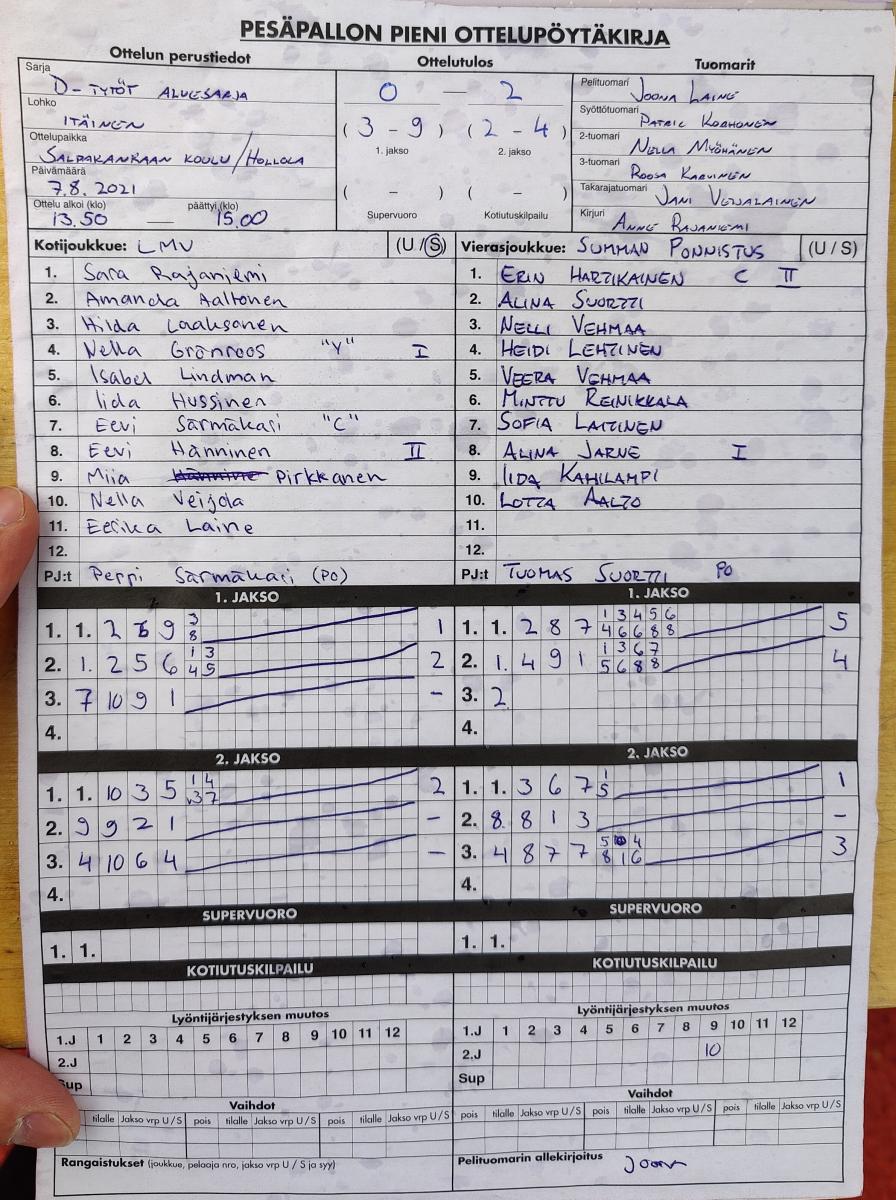 PESÄPALLON PIENI OTTELUPÖYTÄKIRJA
Ottelun perustiedot
Sarja
D-TYTÖT ALUESARJA
Lohko
ITÄINEN
Ottelupaikka
SALPAKANKAAN KOULU/HOLLOLA
Päivämäärä
7.8.2021
Ottelu alkoi (klo) päättyi (klo)
13.50 — 15.00
Ottelutulos
0 — 2
(3 - 9) (2 - 4)
1. jakso 2. jakso
( - ) ( - )
Supervuoro Kotiutuskilpailu
Tuomarit
Pelituomari JOONA LAINE
Syöttötuomari PATRIC KORHONEN
2-tuomari NELLA MYÖHÄNEN
3-tuomari ROOSA KARVINEN
Takarajatuomari JANI VEIJALAINEN
Kirjuri ANNE RAJANIEMI
Kotijoukkue: LMV (U / S)
1. Sara Rajaniemi
2. Amanda Aaltonen
3. Hilda Laaksonen
4. Nella Grönroos "Y" I
5. Isabel Lindman
6. Iida Hussinen
7. Eevi Särmäkari "C"
8. Eevi Hänninen II
9. Miia Pirkkanen
10. Nella Veijola
11. Eerika Laine
12.
PJ:t Peppi Särmäkari (PO)
Vierasjoukkue: SUMMAN PONNISTUS (U / S)
1. ERIN HARTIKAINEN C II
2. ALINA SUORTTI
3. NELLI VEHMAA
4. HEIDI LEHTINEN
5. VEERA VEHMAA
6. MINTTU REINIKKALA
7. SOFIA LAITINEN
8. ALINA JARNE I
9. IIDA KAHILAMPI
10. LOTTA AALTO
11.
12.
PJ:t TUOMAS SUORTTI PO
1. JAKSO
1. 1. 2 9 3 8 1
2. 1. 2 5 6 1 3 4 5 2
3. 7 10 9 1 -
4.
1. JAKSO
1. 1. 2 8 7 1 3 4 5 6 4 6 6 8 8 5
2. 1. 4 9 1 1 3 6 7 5 6 8 8 4
3. 2
4.
2. JAKSO
1. 1. 10 3 5 1 4 3 7 2
2. 9 9 2 1 -
3. 4 10 6 4 -
4.
2. JAKSO
1. 1. 3 6 7 1 5 1
2. 8 8 1 3 -
3. 4 8 7 7 5 4 8 1 6 3
4.
SUPERVUORO
1. 1.
SUPERVUORO
1. 1.
KOTIUTUSKILPAILU
KOTIUTUSKILPAILU
Lyöntijärjestyksen muutos
1.J 1 2 3 4 5 6 7 8 9 10 11 12
2.J
Sup
Lyöntijärjestyksen muutos
1.J 1 2 3 4 5 6 7 8 9 10 11 12
2.J 10
Sup
Vaihdot
tilalle Jakso vrp U / S pois tilalle Jakso vrp U / S pois tilalle Jakso vrp U / S
Vaihdot
pois tilalle Jakso vrp U / S pois tilalle Jakso vrp U / S pois tilalle Jakso vrp U / S
Rangaistukset (joukkue, pelaaja nro, jakso vrp U / S ja syy)
Pelituomarin allekirjoitus